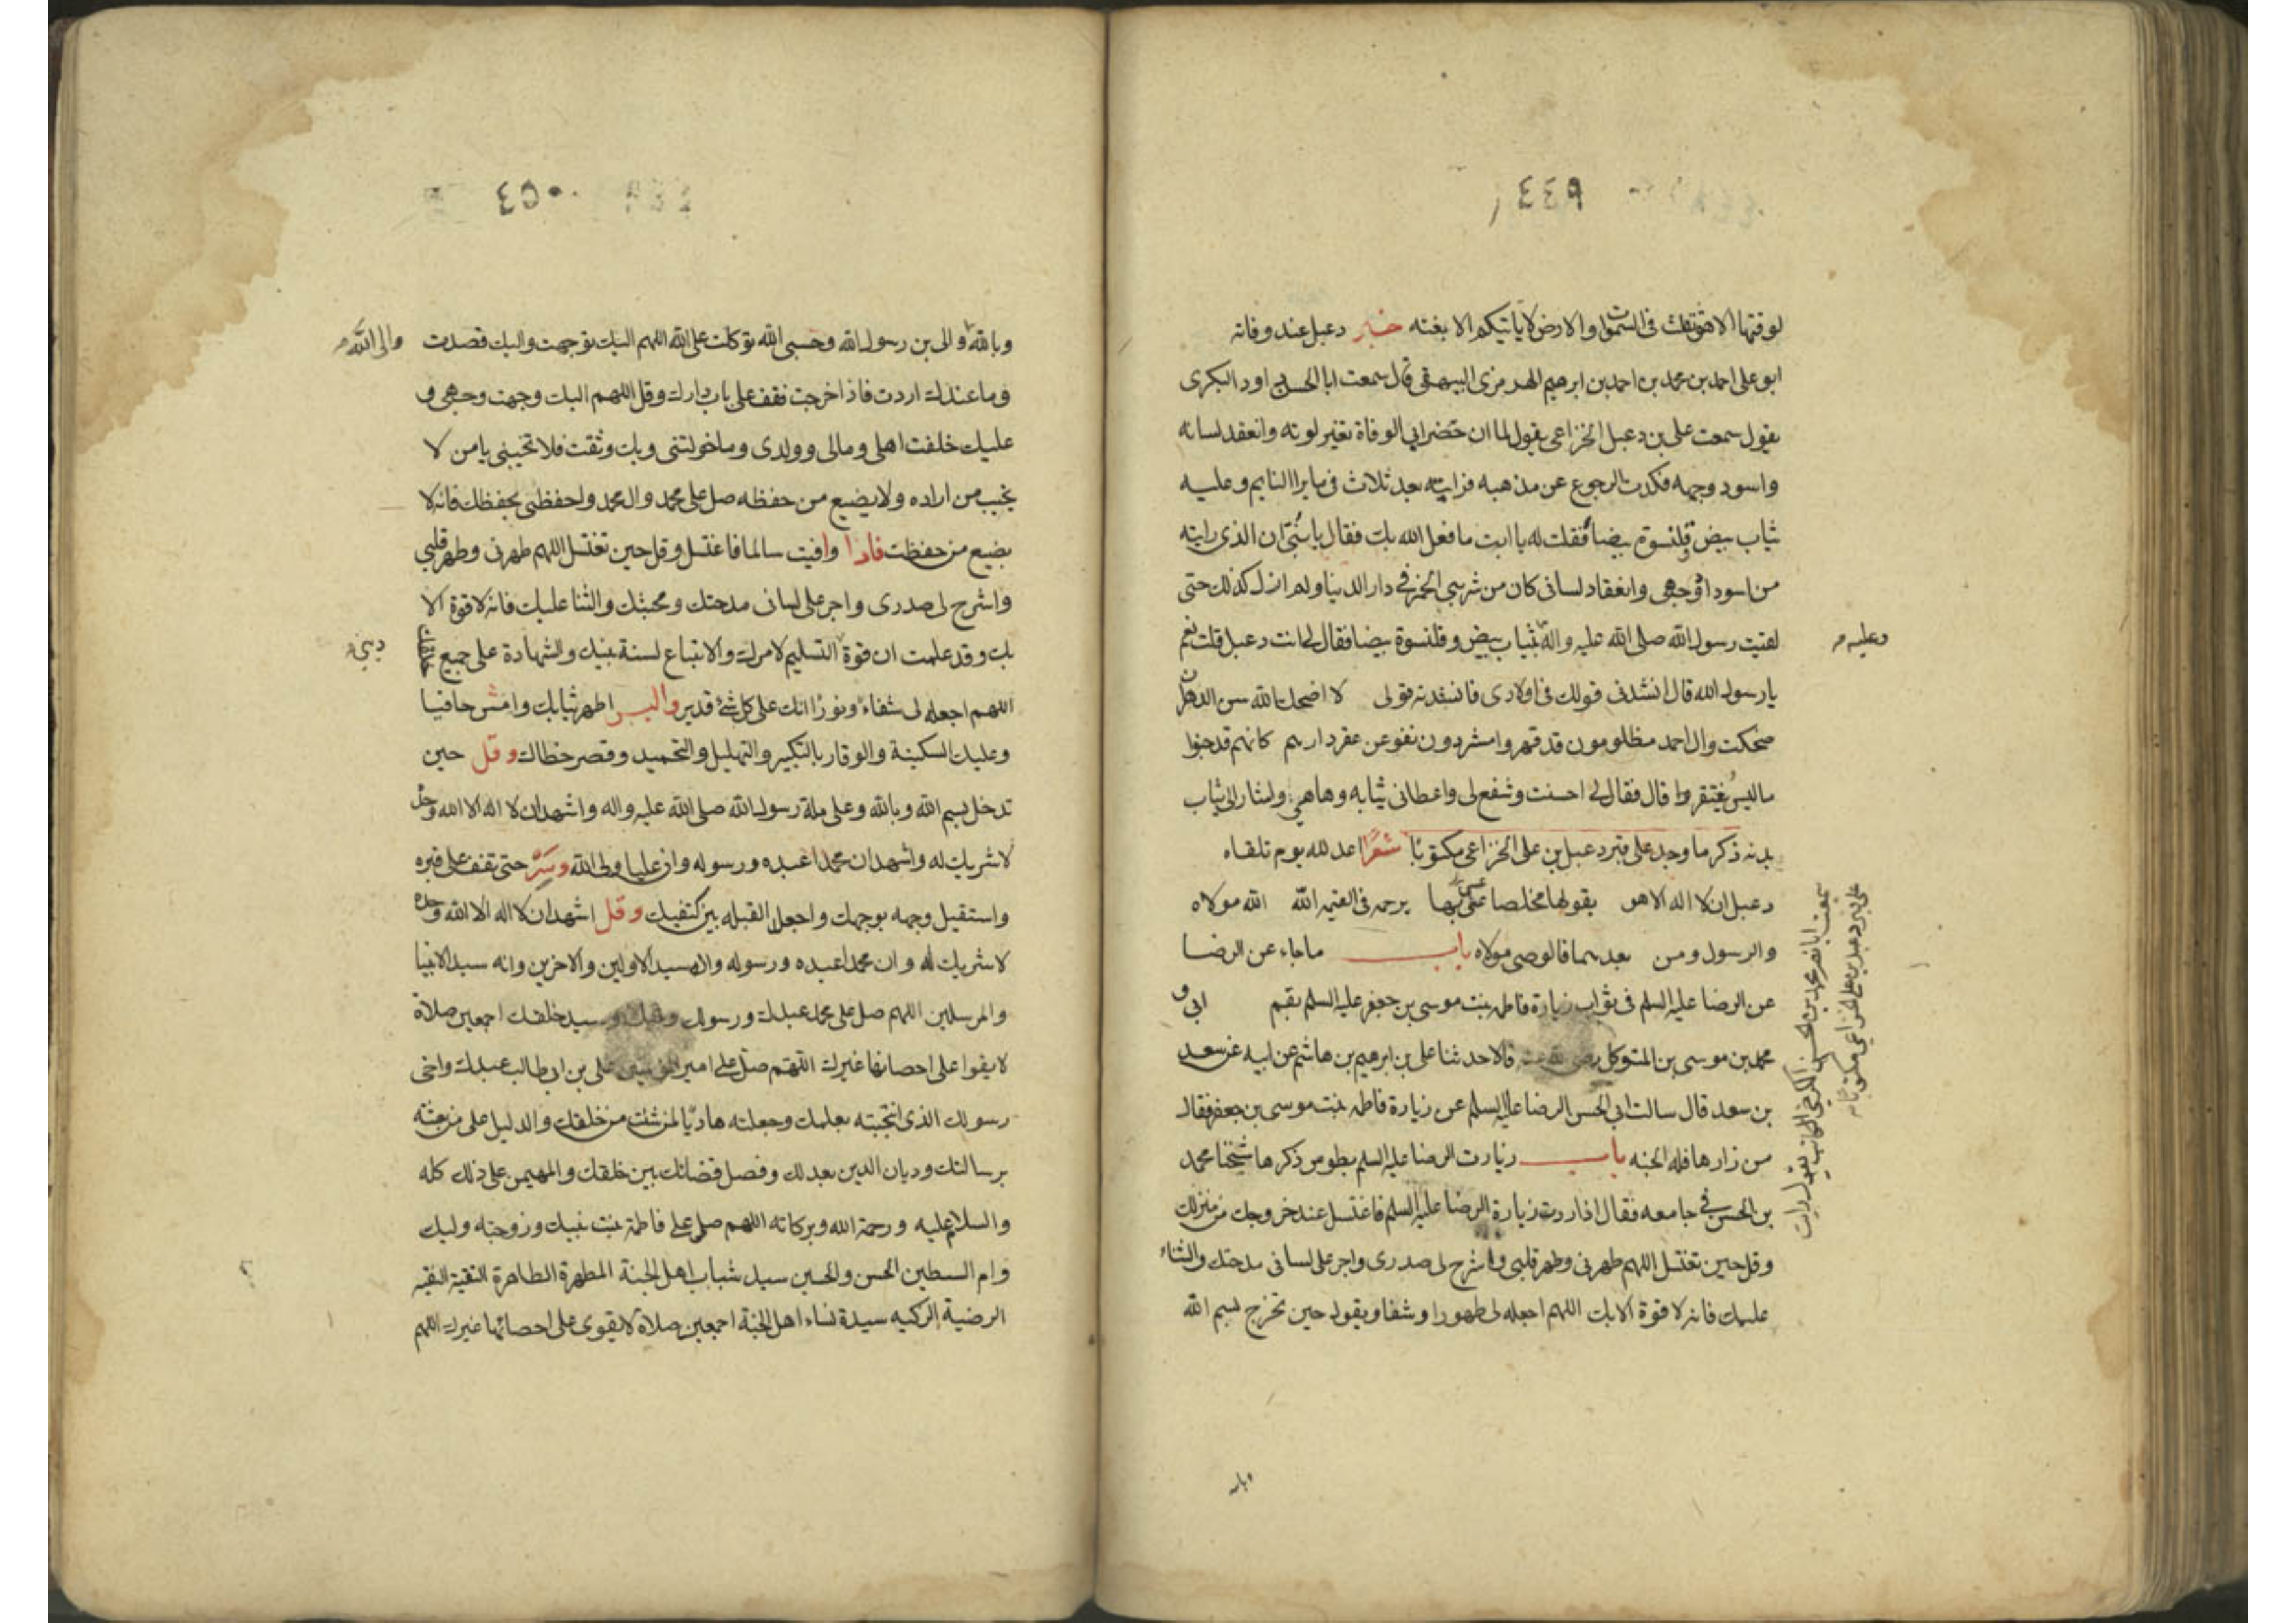 ٤٤٩
لوقتها الا هو ثقلت فى السموات والارض لا ياتيكم الا بغتة خبر دعبل عند وفاته
ابو على احمد بن محمد بن احمد بن ابرهيم الهرمزى البيهقى قال سمعت ابا الحسن داود البكرى
يقول سمعت على بن دعبل الخزاعى يقول لما ان حضر ابى الوفاة تغير لونه وانعقد لسانه
واسود وجهه فكدت الرجوع عن مذهبه فرايته بعد ثلاث فيما يرا النايم وعليه
ثياب بيض وقلنسوة بيضا فقلت له يا ابت ما فعل الله بك فقال يا بنى ان الذى رايته
من اسوداد وجهى وانعقاد لسانى كان من شربى الخمر فى دار الدنيا ولم ازل كذلك حتى
لقيت رسول الله صلى الله عليه واله ثياب بيض وقلنسوة بيضا فقال لى انت دعبل قلت نعم
وعليه
يا رسول الله قال انشدنى قولك فى اولادى فانشدته قولى لا اضحك الله سن الدهر ان
ضحكت وال احمد مظلومون قد قهروا مشردون نفوا عن عقر دارهم كانهم قد جنوا
ما ليس يغتفر وا قال فقال لى احسنت وشفع لى واعطانى ثيابه وها هى واشار الى ثياب
بدنه ذكر ما وجد على قبر دعبل بن على الخزاعى مكتوبا شعرا اعد لله يوم تلقاه
سمعت ابا نصر محمد بن الحسن الكرخى الكاتب يقول رايت
على قبر دعبل بن على الخزاعى مكتوبا
دعبل ان لا اله الا هو يقولها مخلصا عسى بها يرحمه فى القيمة الله الله مولاه
والرسول ومن بعدهما فالوصى مولاه باب ما جاء عن الرضا
عن الرضا عليه السلم فى ثواب زيارة فاطمه بنت موسى بن جعفر عليه السلم بقم ابى و
محمد بن موسى بن المتوكل رضى الله عنه قالا حدثنا على بن ابرهيم بن هاشم عن ابيه عن سعد
بن سعد قال سالت ابى الحسن الرضا عليه السلم عن زيارة فاطمه بنت موسى بن جعفر فقال
من زارها فله الجنه باب زيارت الرضا عليه السلم بطوس ذكرها شيخنا محمد
بن الحسن فى جامعه فقال اذا اردت زيارة الرضا عليه السلم فاغتسل عند خروجك من منزلك
وقل حين تغتسل اللهم طهرنى وطهر قلبى واشرح لى صدرى واجر على لسانى مدحتك والثناء
عليك فانه لا قوة الا بك اللهم اجعله لى طهورا وشفا ويقول حين تخرج بسم الله
٤٥٠
وبالله والى بن رسول الله وحسبى الله توكلت على الله اللهم اليك توجهت واليك قصدت
والى الله
وما عندك اردت فاذا خرجت فقف على باب دارك وقل اللهم اليك وجهت وجهى و
عليك خلفت اهلى ومالى وولدى وما خولتنى وبك وثقت فلا تخيبنى يا من لا
يخيب من اراده ولا يضيع من حفظه صل على محمد وال محمد واحفظنى بحفظك فانه لا
يضيع من حفظت فاذا وافيت سالما فاغتسل وقل حين تغتسل اللهم طهرنى وطهر قلبى
واشرح لى صدرى واجر على لسانى مدحتك ومحبتك والثنا عليك فانه لا قوة الا
بك وقد علمت ان قوة التسليم لامرك والاتباع لسنة نبيك والشهادة على جميع خلقك
دينى
اللهم اجعله لى شفاء ونورا انك على كل شئ قدير والبس اطهر ثيابك وامش حافيا
وعليك السكينة والوقار بالتكبير والتهليل والتحميد وقصر خطاك وقل حين
تدخل بسم الله وبالله وعلى ملة رسول الله صلى الله عليه واله واشهد ان لا اله الا الله وحده
لا شريك له واشهد ان محمدا عبده ورسوله وان عليا ولى الله وسر حتى تقف على قبره
واستقبل وجهه بوجهك واجعل القبله بين كتفيك وقل اشهد ان لا اله الا الله وحده
لا شريك له وان محمدا عبده ورسوله وانه سيد الاولين والاخرين وانه سيد الانبيا
والمرسلين اللهم صل على محمد عبدك ورسولك ونبيك وسيد خلقك اجمعين صلاة
لا يقوا على احصائها غيرك اللهم صل على امير المؤمنين على بن ابى طالب عبدك واخى
رسولك الذى انتجبته بعلمك وجعلته هاديا لمن شئت من خلقك والدليل على من بعثته
برسالتك وديان الدين بعدلك وفصل قضائك بين خلقك والمهيمن على ذلك كله
والسلام عليه ورحمة الله وبركاته اللهم صل على فاطمة بنت نبيك وزوجة وليك
وام السبطين الحسن والحسين سيد شباب اهل الجنة المطهرة الطاهرة التقية النقيه
الرضية الزكيه سيدة نساء اهل الجنة اجمعين صلاة لا يقوى على احصائها غيرك اللهم